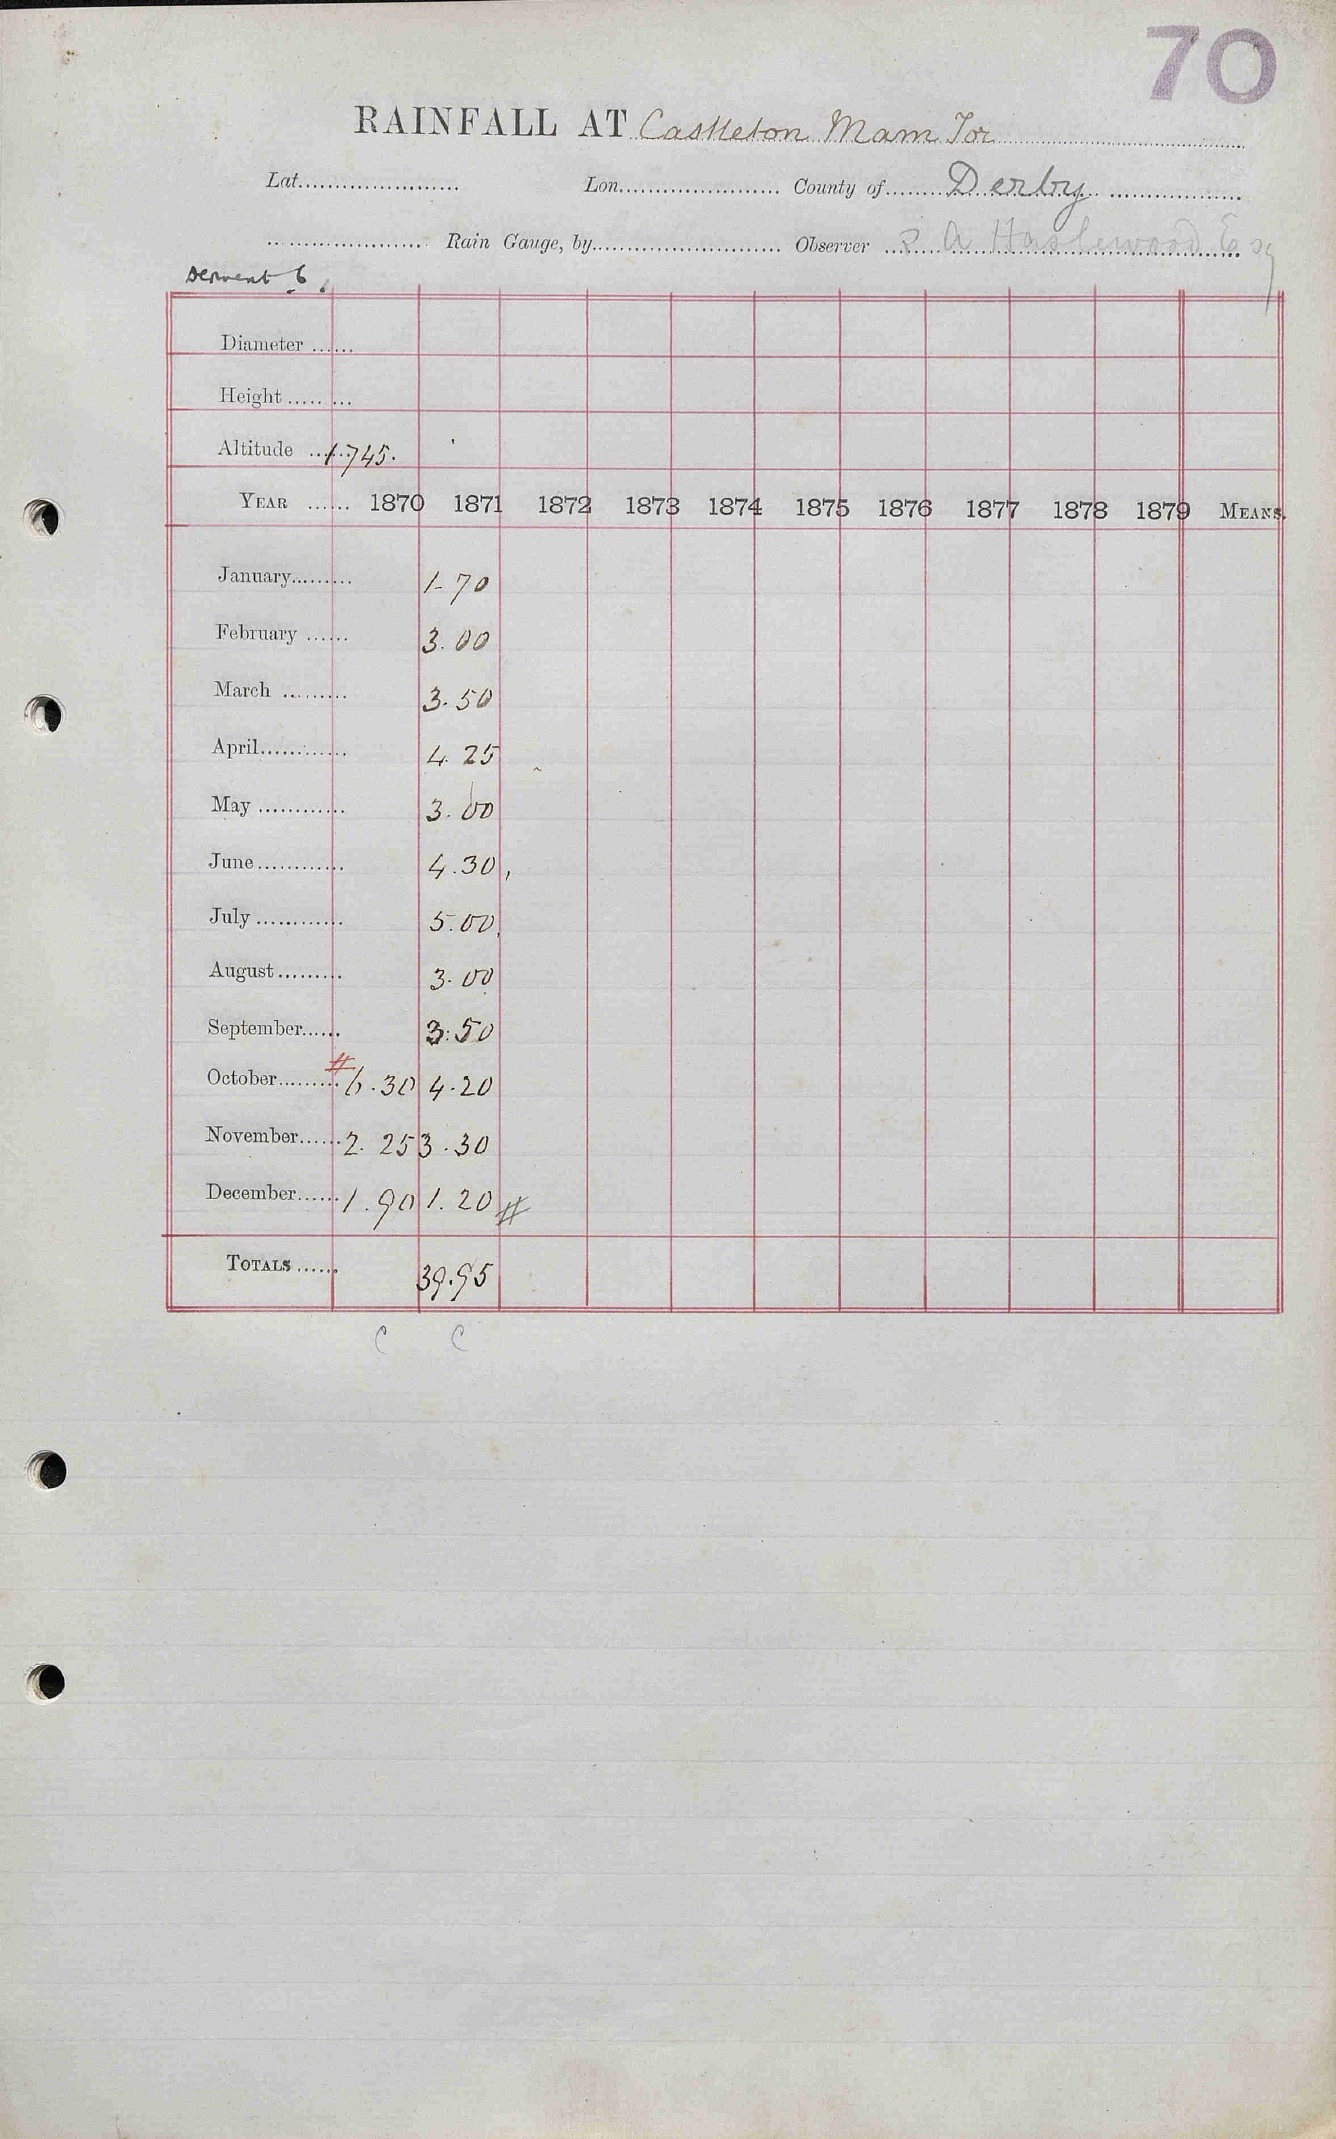 70
RAINFALL AT Castleton Mam Tor
Lat. Lon. County of Derby
Rain Gauge, by Observer A Haslewood Esq
Derwent 6.
Diameter
Height
Altitude 1745.
YEAR 1870 1871 1872 1873 1874 1875 1876 1877 1878 1879 MEANS.
January 1.70
February 3.00
March 3.50
April 4.25
May 3.00
June 4.30
July 5.00
August 3.00
September 3.50
October # 6.30 4.20
November 2.25 3.30
December 1.90 1.20 #
TOTALS 39.95
C C